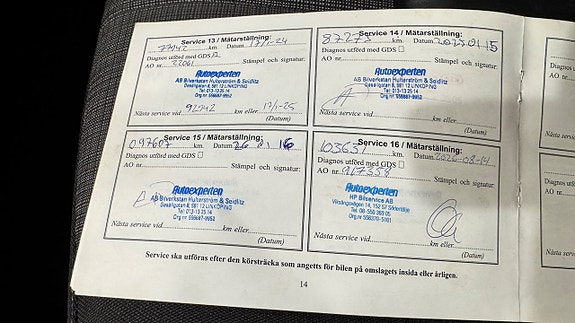 Service 13 / Mätarställning:
77942 km. Datum 17/1-24
Diagnos utförd med GDS
AO nr. 22061 Stämpel och signatur:
Autoexperten
AB Bilverkstan Hulterström & Seidlitz
Gesällgatan 8, 581 12 LINKÖPING
Tel 013-13 25 14
Org.nr 556687-9952
Nästa service vid 92942 km eller 17/1-25
(Datum)
Service 14 / Mätarställning:
87273 km. Datum 2025 01 15
Diagnos utförd med GDS
AO nr. Stämpel och signatur:
Autoexperten
AB Bilverkstan Hulterström & Seidlitz
Gesällgatan 8, 581 12 LINKÖPING
Tel 013-13 25 14
Org.nr 556687-9952
Nästa service vid km eller
(Datum)
Service 15 / Mätarställning:
097607 km. Datum 26 01 16
Diagnos utförd med GDS
AO nr. Stämpel och signatur:
Autoexperten
AB Bilverkstan Hulterström & Seidlitz
Gesällgatan 8, 581 12 LINKÖPING
Tel 013-13 25 14
Org.nr 556687-9952
Nästa service vid km eller
(Datum)
Service 16 / Mätarställning:
103631 km. Datum 2026-08-14
Diagnos utförd med GDS
AO nr. 917358 Stämpel och signatur:
Autoexperten
HP Bilservice AB
152 57 Södertälje
Nästa service vid km eller
(Datum)
Service ska utföras efter den körsträcka som angetts för bilen på omslagets insida eller årligen.
14